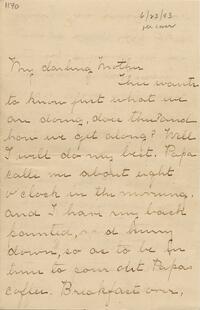 1190
6/23/83
My darling Mother
She wants
to know just what we
are doing, does she? and
how we get along? Well
I will do my best. Papa
calls me about eight
o'clock in the morning.
and I have my back
sounted, and hurry
down, so as to be in
time to pour out Papa's
coffee. Breakfast over,